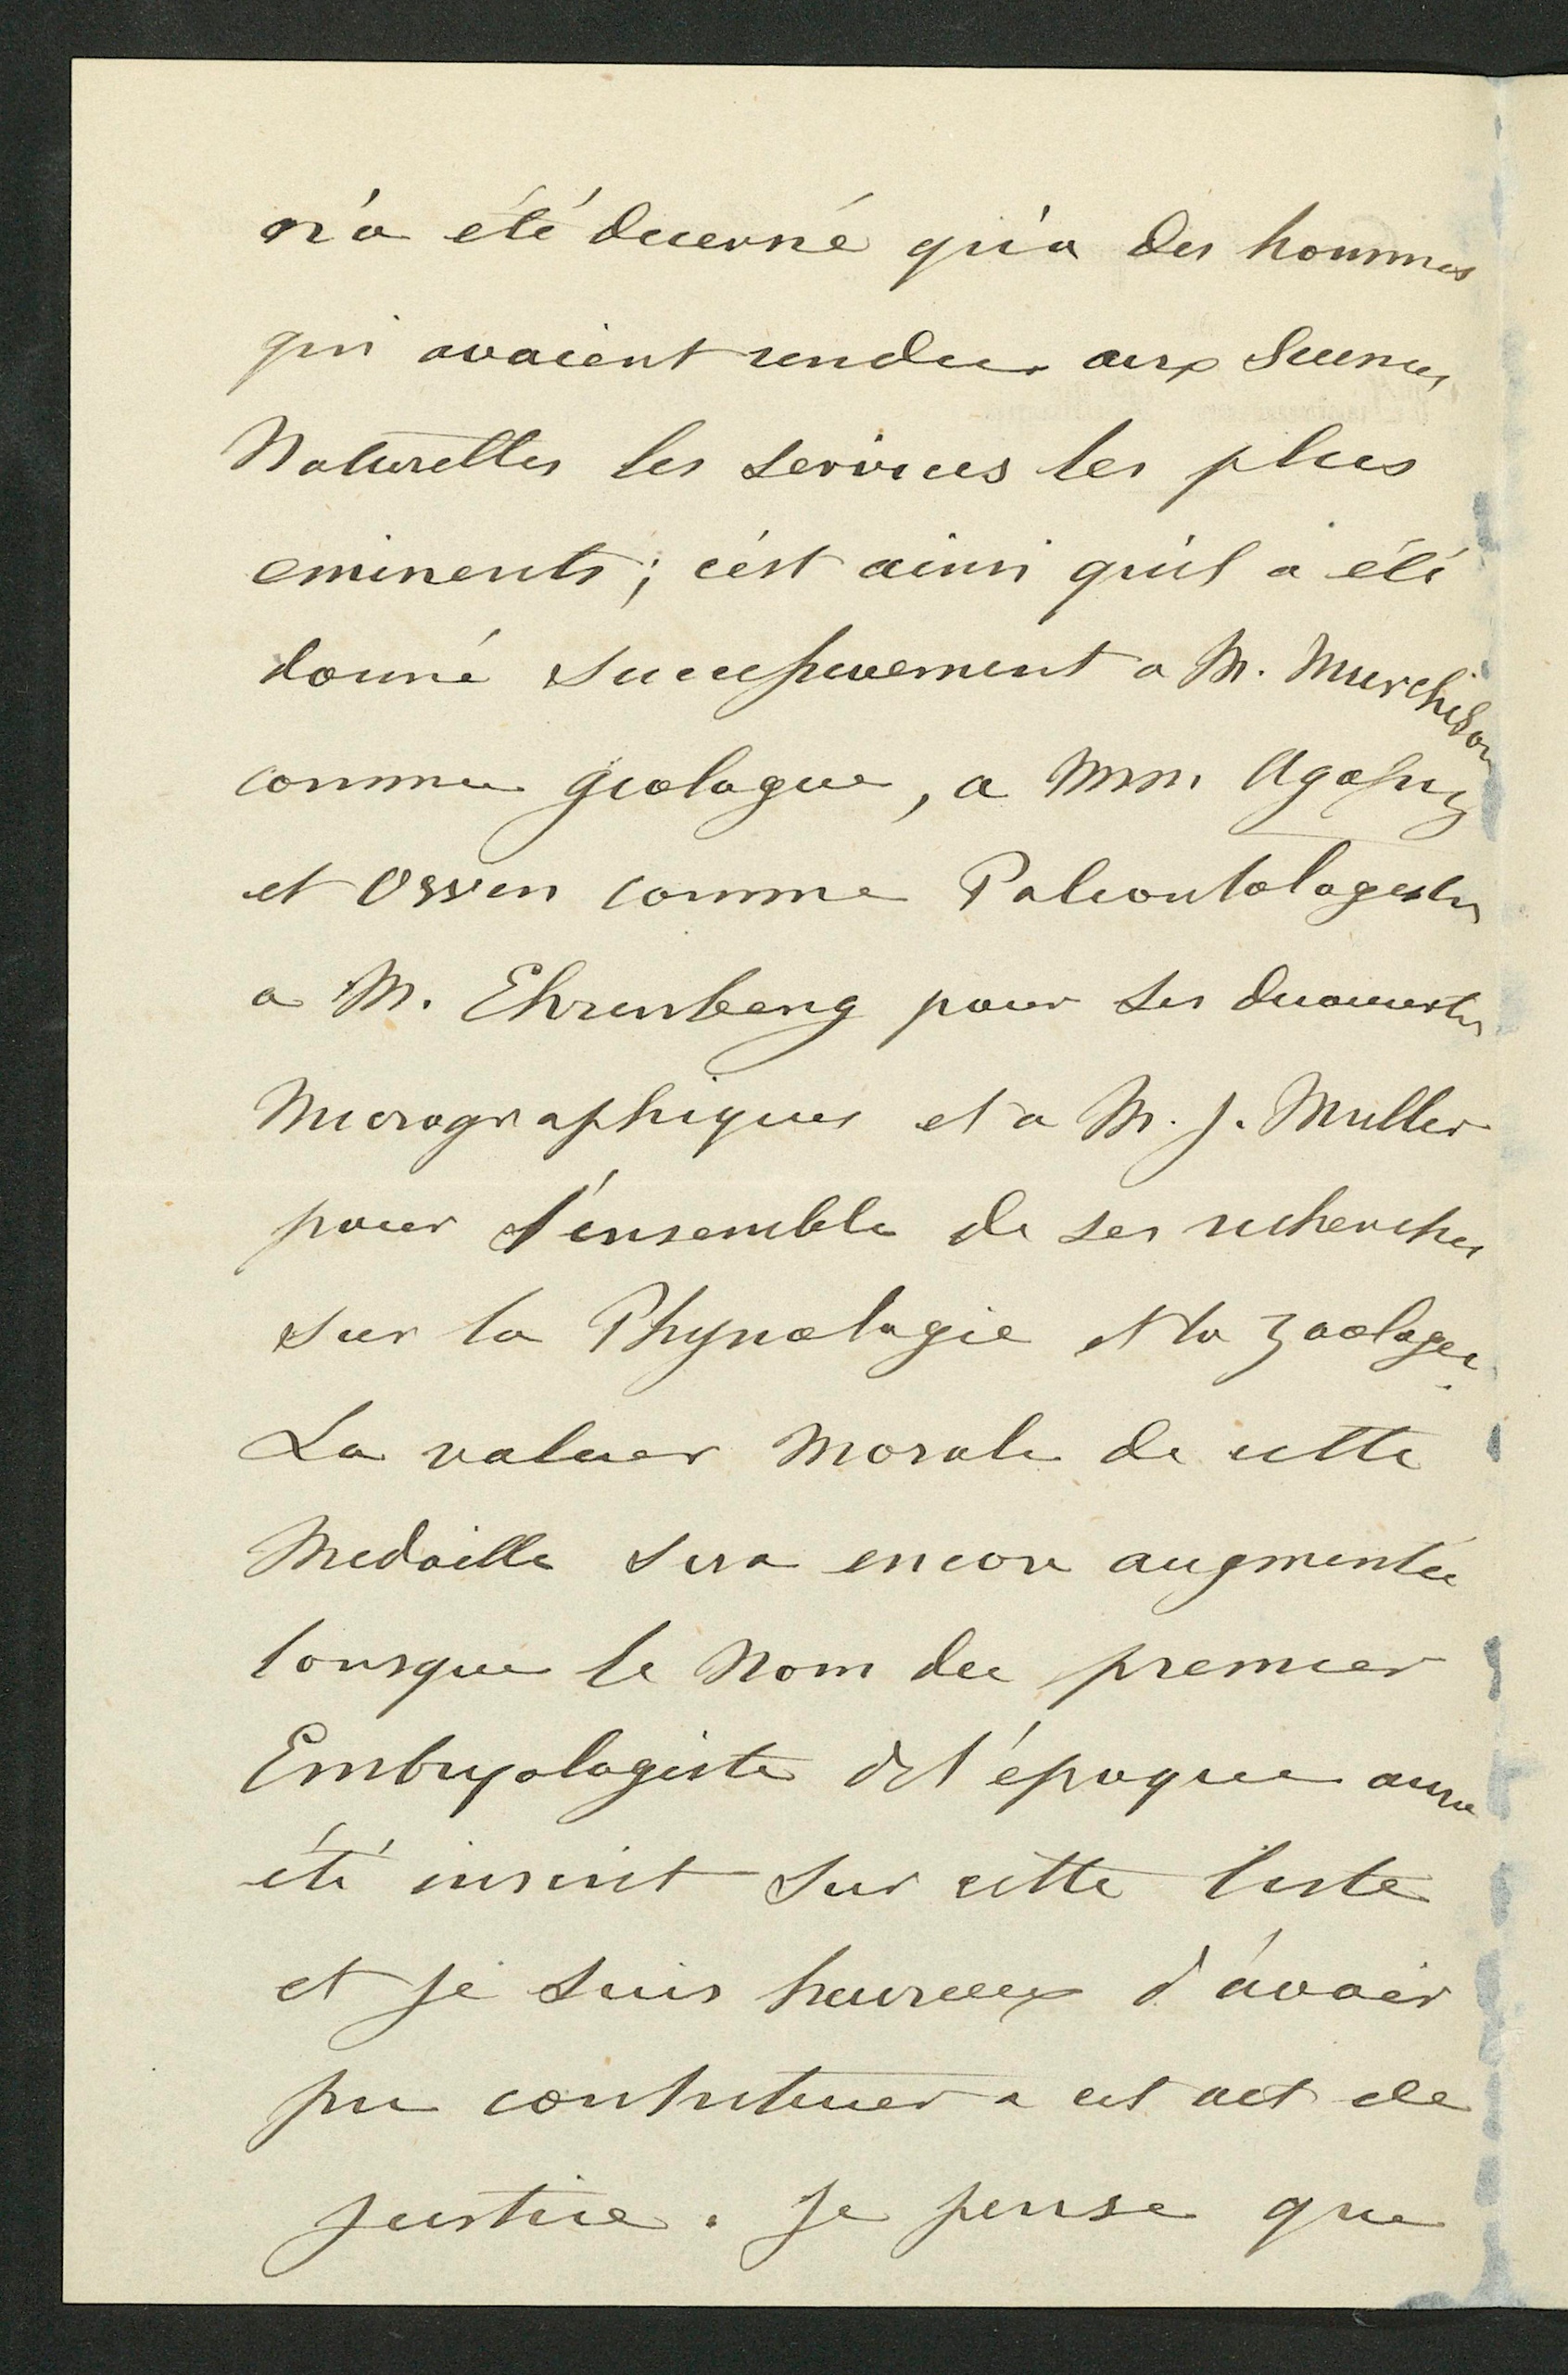 n'a été decerné qu'a des hommes
qui avaient rendus aux Sciences
Naturelles les services les plus
eminents; c'est ainsi qu'il a été
donné successivement a M. Murchison
comme geologue, a MM. Agassiz
et Owen comme Paleontologistes
a M. Ehrenberg pour ses decouvertes
Micrographiques et a M. J. Muller
pour l'ensemble de ses recherches
sur la Physiologie et la Zoologie.
La valeur Morale de cette
Medaille sera encore augmentée
lorsque le Nom du premier
Embryologiste de l'époque aura
été inscrit sur cette liste
et je suis heureux d'avoir
pu contribuer a cet act de
justice. Je pense que